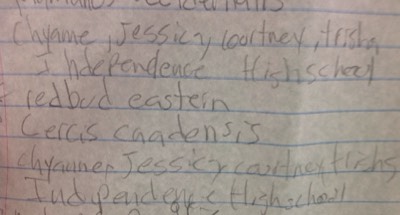 Chyanne, Jessicy, courtney, trisha
Independence Highschool
redbud eastein
Cercis cnadensis
chyanner Jessicy courtney trishs
Independence Highschool